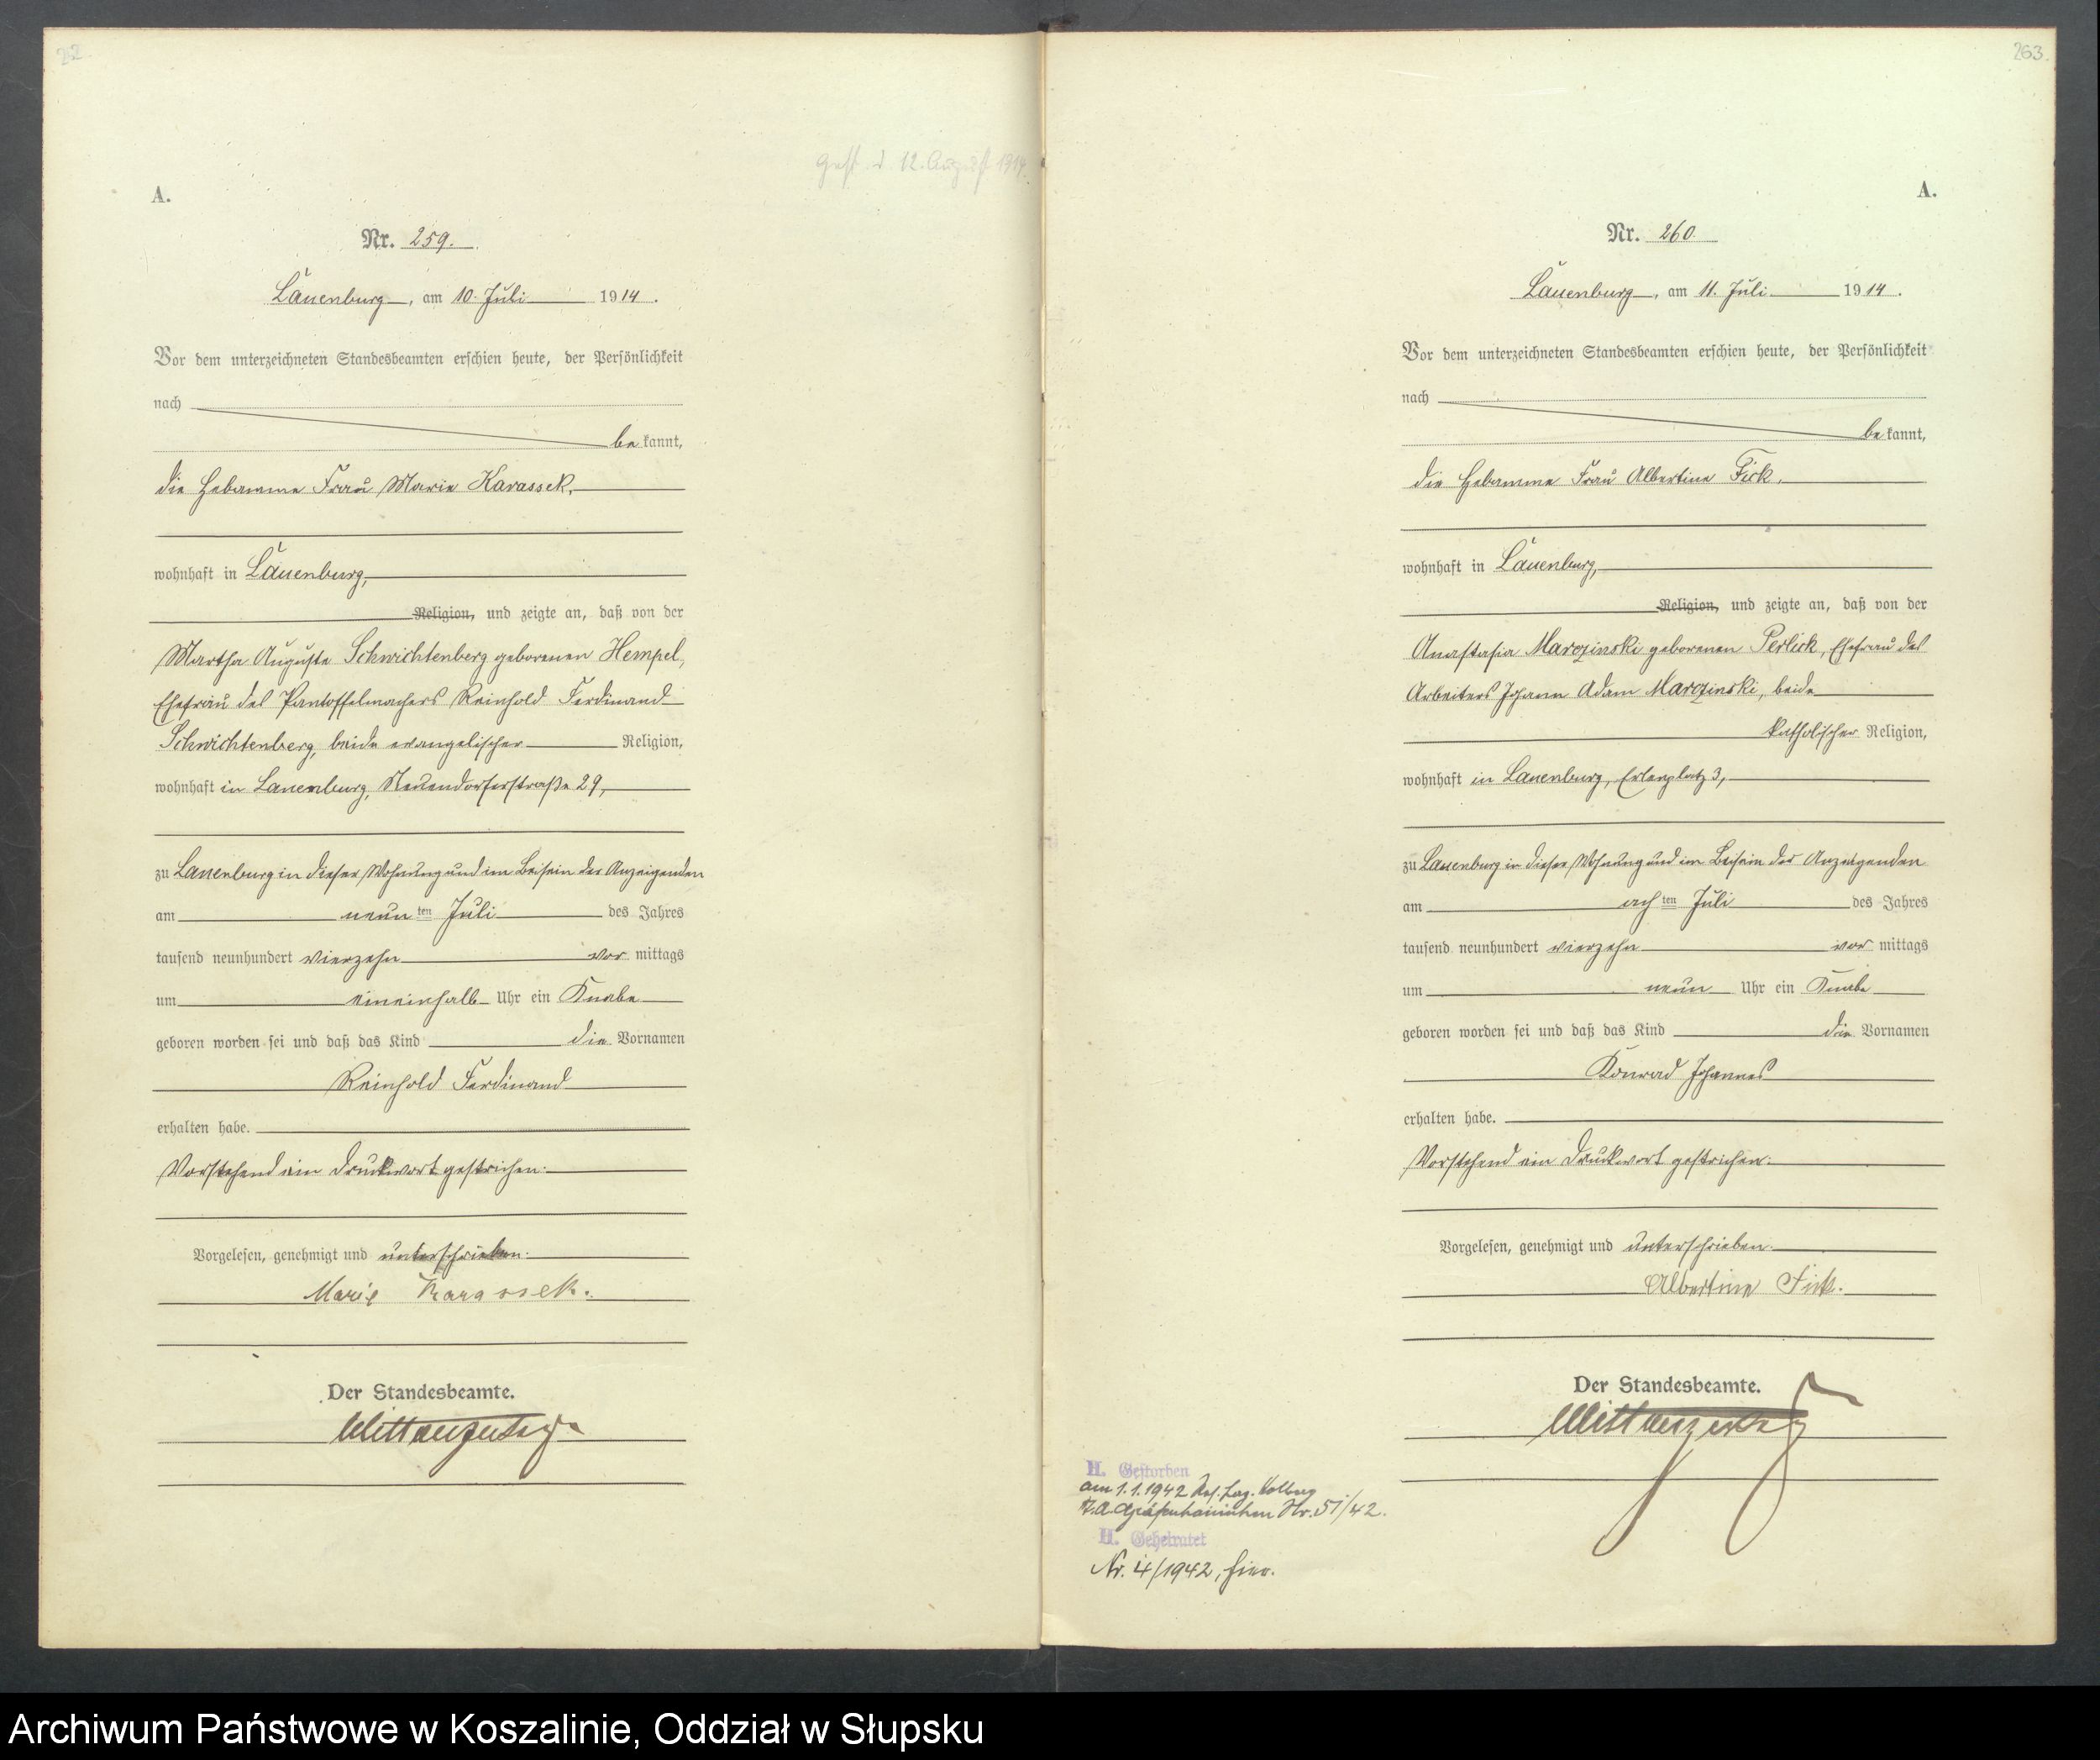 262.
gest. d. 12. August 1914.
A.
Nr. 259.
Lauenburg, am 10. Juli 1914.
Vor dem unterzeichneten Standesbeamten erschien heute, der Persönlichkeit
nach
be kannt,
die Hebamme Frau Marie Karassek,
wohnhaft in Lauenburg,
Religion, und zeigte an, daß von der
Martha Auguste Schwichtenberg geborenen Hempel,
Ehefrau des Pantoffelmachers Reinhold Ferdinand
Schwichtenberg, beide evangelischer Religion,
wohnhaft in Lauenburg, Neuendorferstraße 29,
zu Lauenburg in dieser Wohnung und im Beisein der Anzeigenden
am neun ten Juli des Jahres
tausend neunhundert vierzehn vor mittags
um eineinhalb Uhr ein Knabe
geboren worden sei und daß das Kind die Vornamen
Reinhold Ferdinand
erhalten habe.
Vorstehend ein Druckwort gestrichen.
Vorgelesen, genehmigt und unterschrieben.
Marie Karassek.
Der Standesbeamte.
263.
A.
Nr. 260.
Lauenburg, am 11. Juli 1914.
Vor dem unterzeichneten Standesbeamten erschien heute, der Persönlichkeit
nach
be kannt,
die Hebamme Frau Albertine Fick,
wohnhaft in Lauenburg,
Religion, und zeigte an, daß von der
Anastasia Marozinski geborenen Perlick, Ehefrau des
Arbeiters Johann Adam Marozinski, beide
katholischer Religion,
wohnhaft in Lauenburg, Erlenplatz 3,
zu Lauenburg in dieser Wohnung und im Beisein der Anzeigenden
am ach ten Juli des Jahres
tausend neunhundert vierzehn vor mittags
um neun Uhr ein Knabe
geboren worden sei und daß das Kind die Vornamen
Konrad Johannes
erhalten habe.
Vorstehend ein Druckwort gestrichen.
Vorgelesen, genehmigt und unterschrieben.
Albertine Fick.
Der Standesbeamte.
H. Gestorben
am 1.1.1942 Res. Laz. Kolberg
Nr. 51/42.
H. Geheiratet
Nr. 4/1942, hier.
Archiwum Państwowe w Koszalinie, Oddział w Słupsku